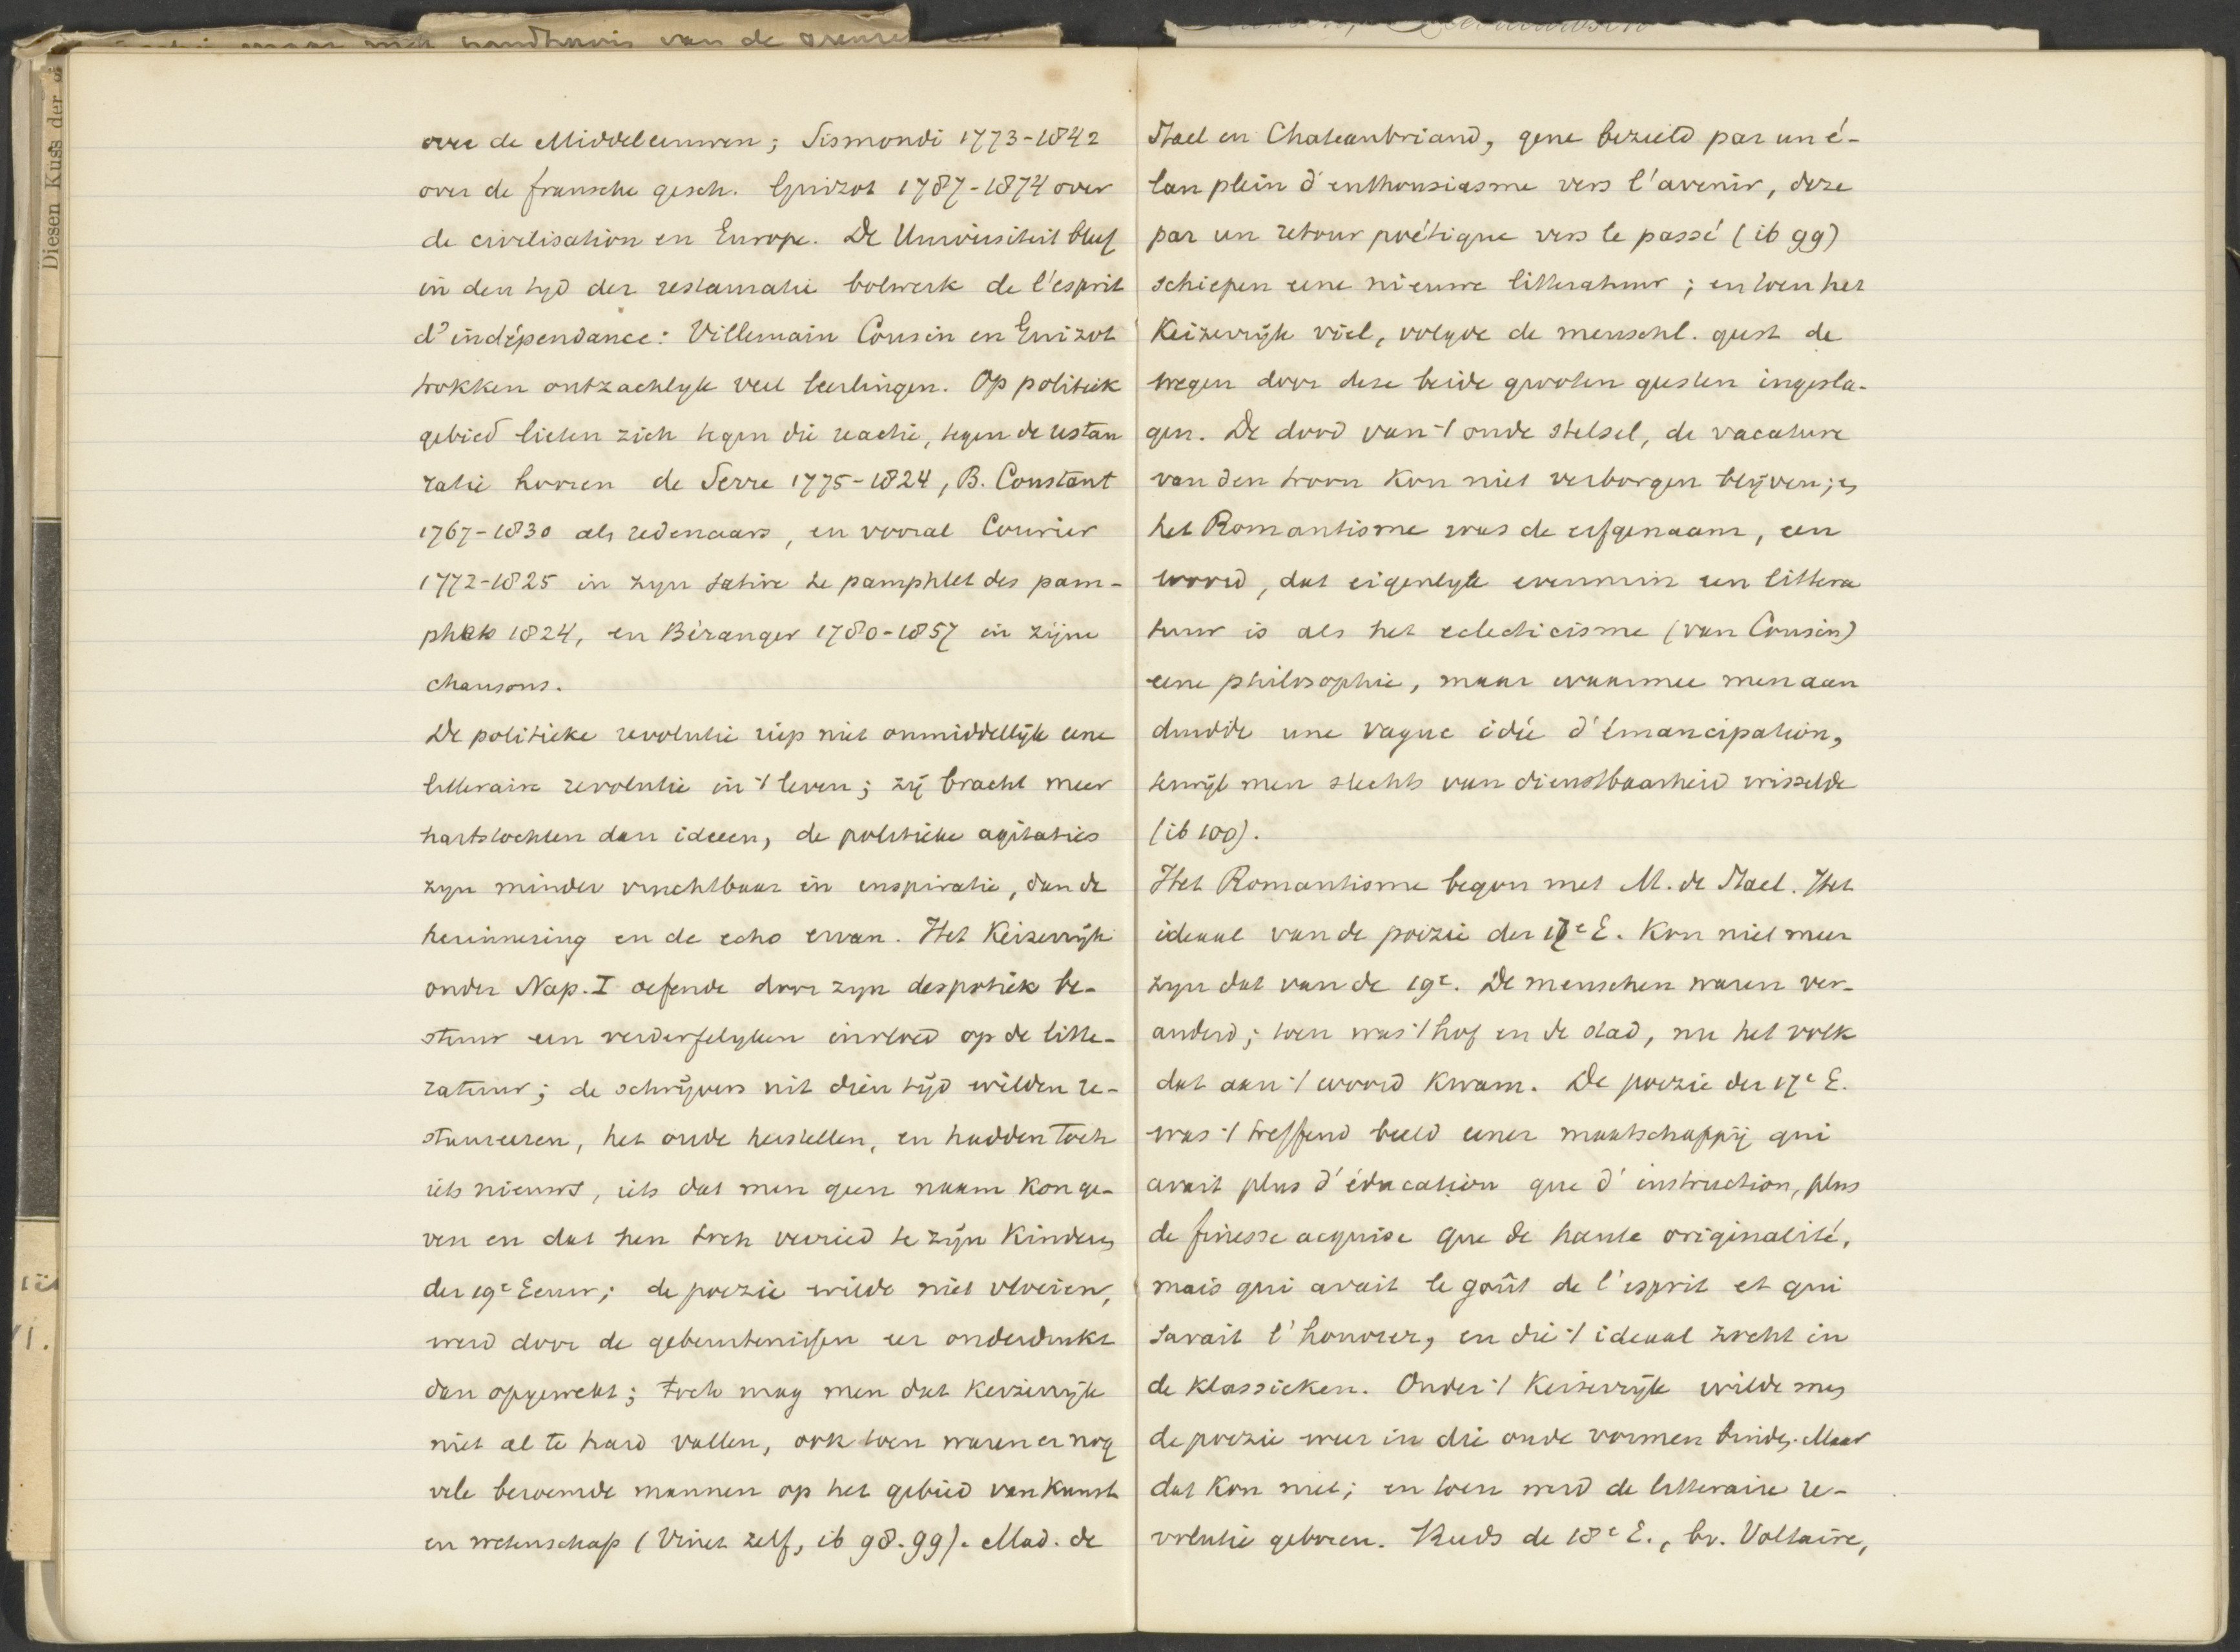 Diesen Kuss der
over de Middeleeuwen; Sismondi 1773-1842
over de fransche gesch. Guizot 1787-1874 over
de civilisation en Europe. De Universiteit bleef
in den tyd der restauratie bolwerk de l'esprit
d'indépendance: Villemain Cousin en Guizot
trokken ontzachlyk veel leerlingen. Op politiek
gebied lieten zich tegen die reactie, tegen de restau
ratie hooren de Serre 1775-1824, B. Constant
1767-1830 als redenaars, en vooral Courier
1772-1825 in zyn satire le pamphlet des pam-
phlets 1824, en Béranger 1780-1857 in zijne
chansons.
De politieke revolutie riep niet onmiddellijk eene
litteraire revolutie in 't leven; zij bracht meer
hartstochten dan ideeen, de politieke agitaties
zyn minder vruchtbaar in inspiratie, dan de
herinnering en de echo ervan. Het Keizerrijk
onder Nap. I oefende door zyn despotiek be-
stuur een verderfelyken invloed op de litte-
ratuur; de schrijvers uit dien tijd wilden re-
staureeren, het oude herstellen, en hadden toch
iets nieuws, iets dat men geen naam kon ge-
ven en dat hen toch verried te zijn kinderen
der 19e Eeuw; de poezie wilde niet vloeien,
werd door de gebeurtenissen eer onderdrukt
dan opgewekt; toch mag men dat Keizerrijk
niet al te hard vallen, ook toen waren er nog
vele beroemde mannen op het gebied van kunst
en wetenschap (Vinet zelf, ib 98.99). Mad. de
Stael en Chateaubriand, gene bezield par un é-
lan plein d'enthousiasme vers l'avenir, deze
par un retour poétique vers le passé (ib 99)
schiepen eene nieuwe litteratuur; en toen het
Keizerrijk viel, volgde de menschl. geest de
wegen door deze beide grooten geesten ingesla-
gen. De dood van 't oude stelsel, de vacature
van den troon kon niet verborgen blijven; en
het Romantisme was de erfgenaam, een
woord, dat eigenlyk evenmin een littera
tuur is als het eclecticisme (van Cousin)
eene philosophie, maar waarmee men aan
duidde une vague idée d'émancipation,
terwijl men slechts van dienstbaarheid wisselde
(ib 100).
Het Romantisme begon met M. de Stael. Het
ideaal van de poezie der 17e E. kon niet meer
zyn dat van de 19e. De menschen waren ver-
anderd; toen was 't hof en de stad, nu het volk
dat aan 't woord kwam. De poezie der 17e E.
was 't treffend beeld eener maatschappij qui
avait plus d'éducation que d'instruction, plus
de finesse acquise que de haute originalité,
mais qui avait le goût de l'esprit et qui
savait l'honorer, en die 't ideaal zocht in
de klassieken. Onder 't Keizerrijk wilde men
de poezie weer in die oude vormen binden. Maar
dat kon niet; en toen werd de litteraire re-
volutie geboren. Reeds de 18e E., bv. Voltaire,